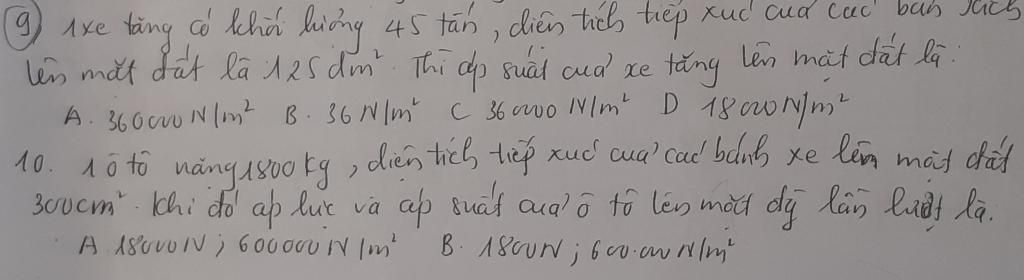 9) 1 xe tăng có khối lượng 45 tấn, diện tích tiếp xúc của các bản xích
lên mặt đất là 125 dm². Thì áp suất của xe tăng lên mặt đất là:
A. 360000 N/m² B. 36 N/m² C 36000 N/m² D 18000 N/m²
10. 1 ô tô nặng 1800 kg, diện tích tiếp xúc của các bánh xe lên mặt đất
300cm². Khi đó áp lực và áp suất của ô tô lên mặt đg lần lượt là.
A 18000N; 600000 N/m² B. 1800N; 600.000 N/m²